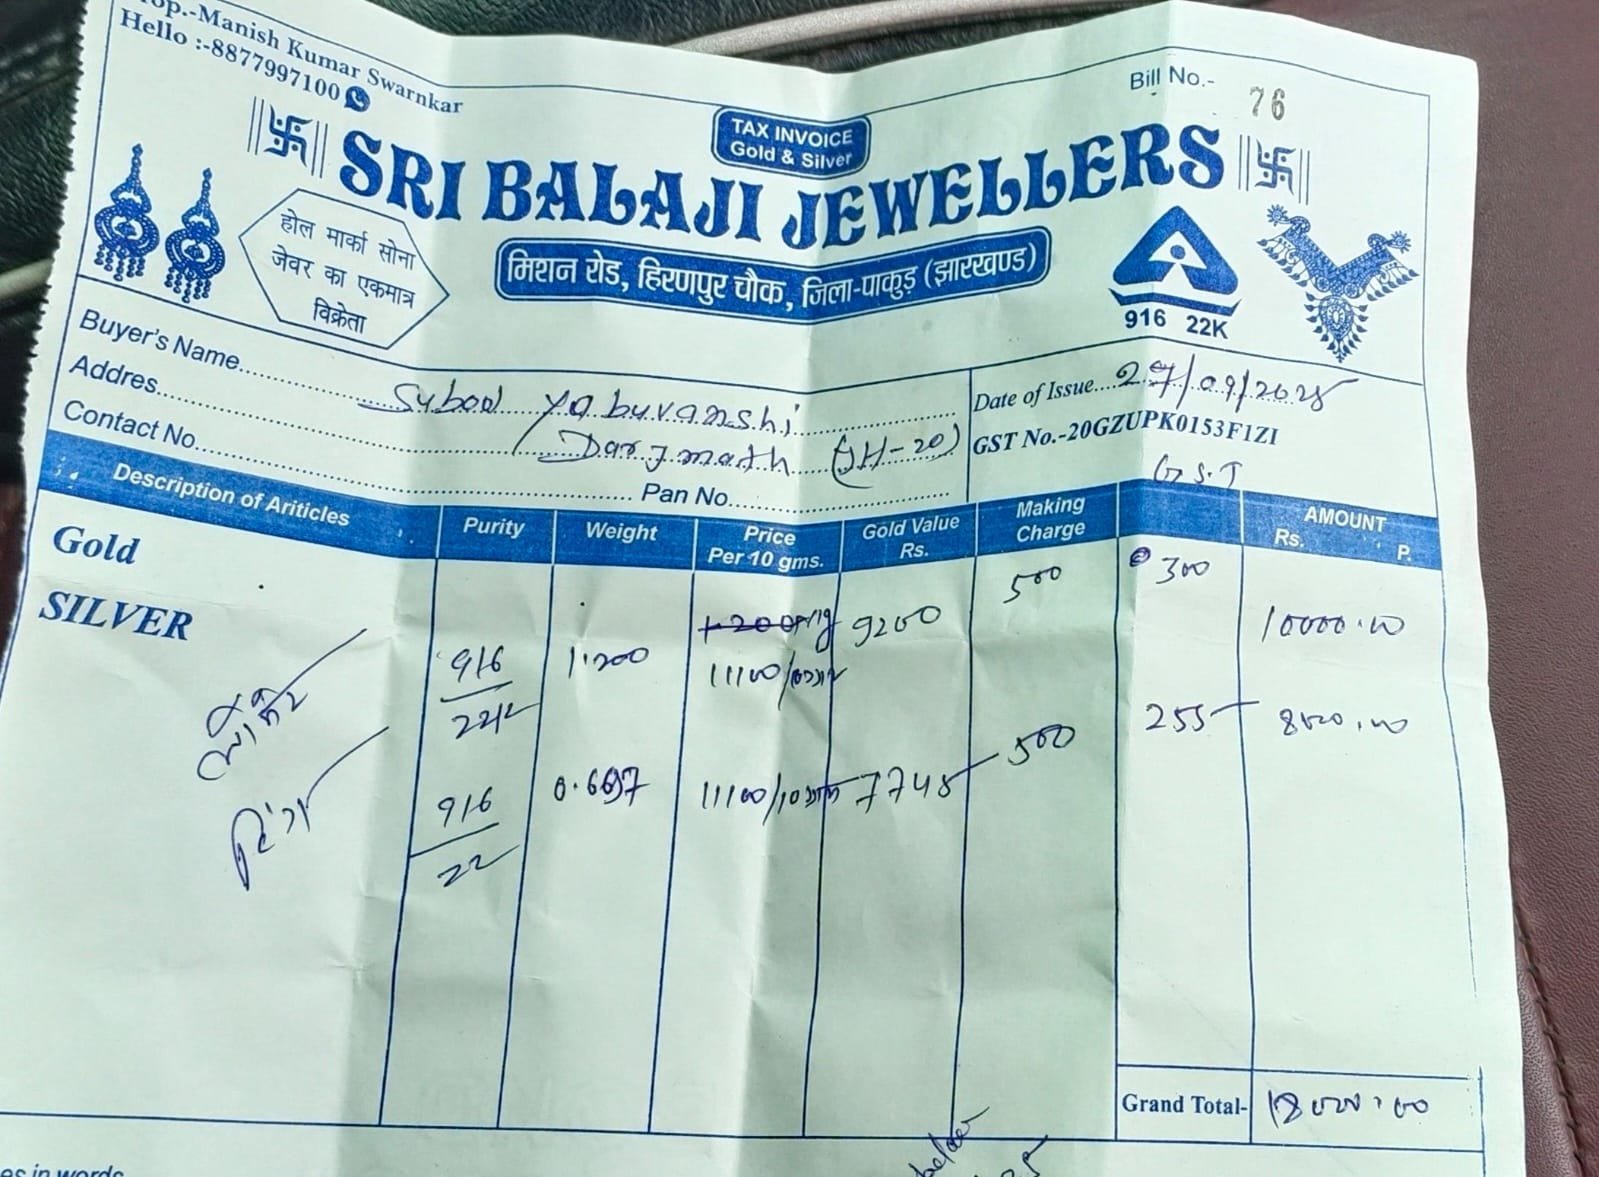 op.-Manish Kumar Swarnkar
Hello :-8877997100
Bill No.- 76
TAX INVOICE
Gold & Silver
SRI BALAJI JEWELLERS
होल मार्का सोना
जेवर का एकमात्र
विक्रेता
मिशन रोड, हिरणपुर चौक, जिला-पाकुड़ (झारखण्ड)
916 22K
Buyer's Name Subod Yabuvanshi
Addres. Darjmath (JH-20)
Contact No. Pan No.
Date of Issue 27/09/2025
GST No.-20GZUPK0153F1ZI
G S.T
Description of Ariticles Purity Weight Price Per 10 gms. Gold Value Rs. Making Charge AMOUNT Rs. P.
Gold
SILVER
916 1.200 9200 500 300 10000.00
22
11100/
916 0.697 11100/ 7748 500 255 8500.00
22
Grand Total- 18500.00
es in words